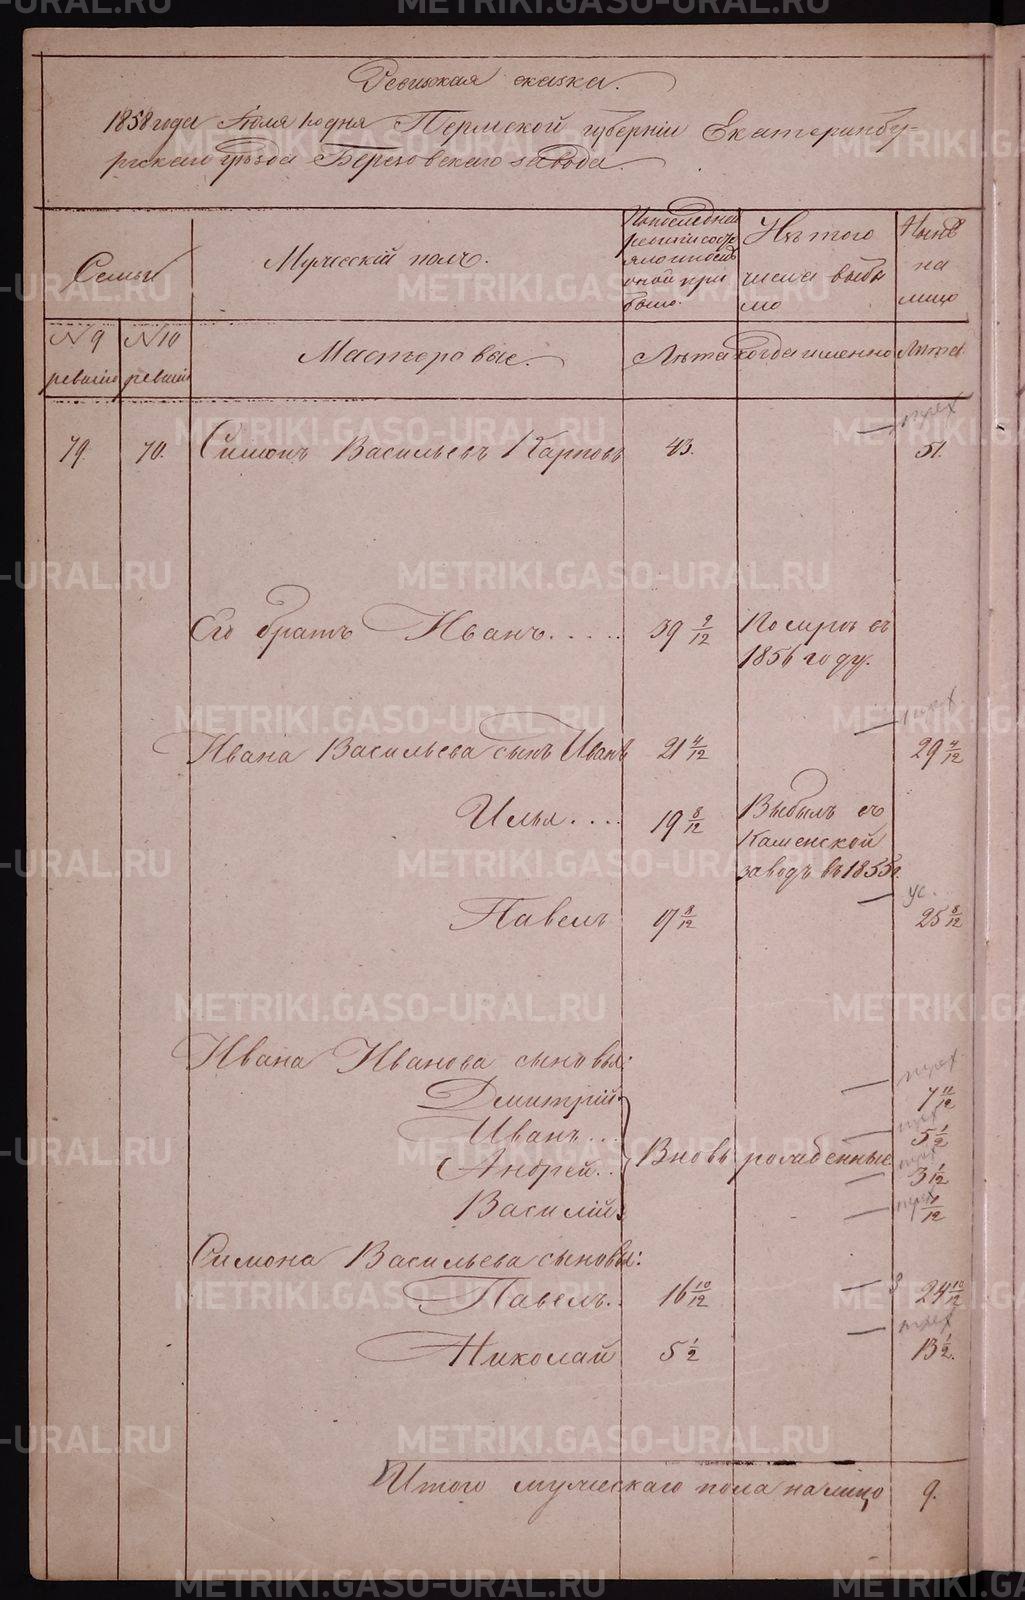 Ревизская сказка.
1858 года Июля 10 дня Пермской губернiи Екатеринбу-
ргскаго уѣзда Березовскаго завода.
Семьи
Мужескiй полъ.
По последней
ревизiи состо
яло и после
оной при
было.
Изъ того
числа выбы
ло
Нынѣ
на
лицо
N 9
ревизiи
N 10
ревизiи
Мастеровые.
Лѣта
когда именно
Лѣта
79. 70. Симонъ Васильевъ Карповъ 43. 51.
Его братъ Иванъ..... 39 9/12 Померъ въ
1856 году.
Ивана Васильева сынъ Иванъ 21 4/12 29 4/12
Илья.... 19 8/12 Выбылъ въ
Каменской
заводъ въ 1855 г.
ус.
Павелъ 17 8/12 25 8/12
Ивана Иванова сыновья:
Дмитрiй 7 11/12
Иванъ... 5 1/2
Андрей.. Вновь рожденные 3 1/12
Василiй 1/12
Симона Васильева сыновья:
Павелъ.. 16 10/12 3 24 10/12
Николай 5 1/2 13 1/2.
Итого мужескаго пола на лицо 9.
METRIKI.GASO-URAL.RU